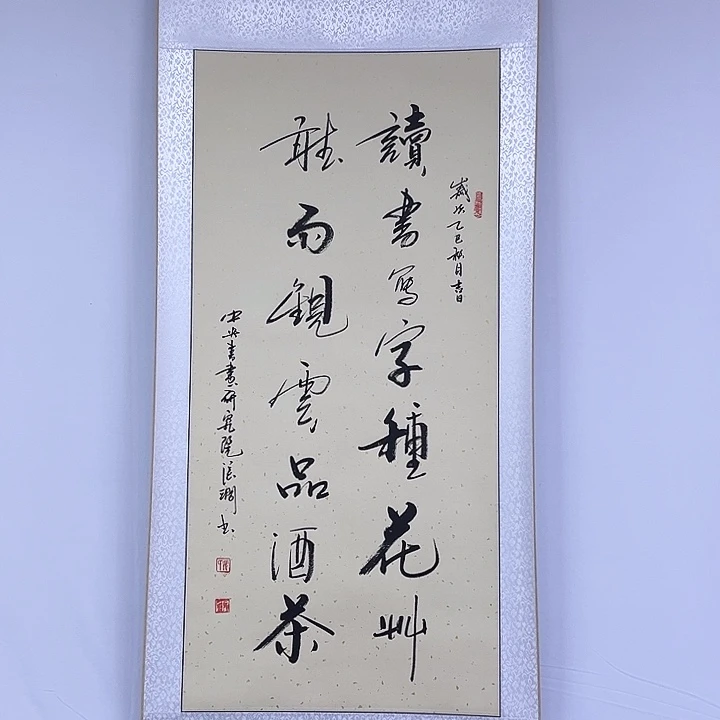 歲次乙巳秋月吉日
讀書寫字種花艸
聽雨觀雲品酒茶
中央書畫研究院書